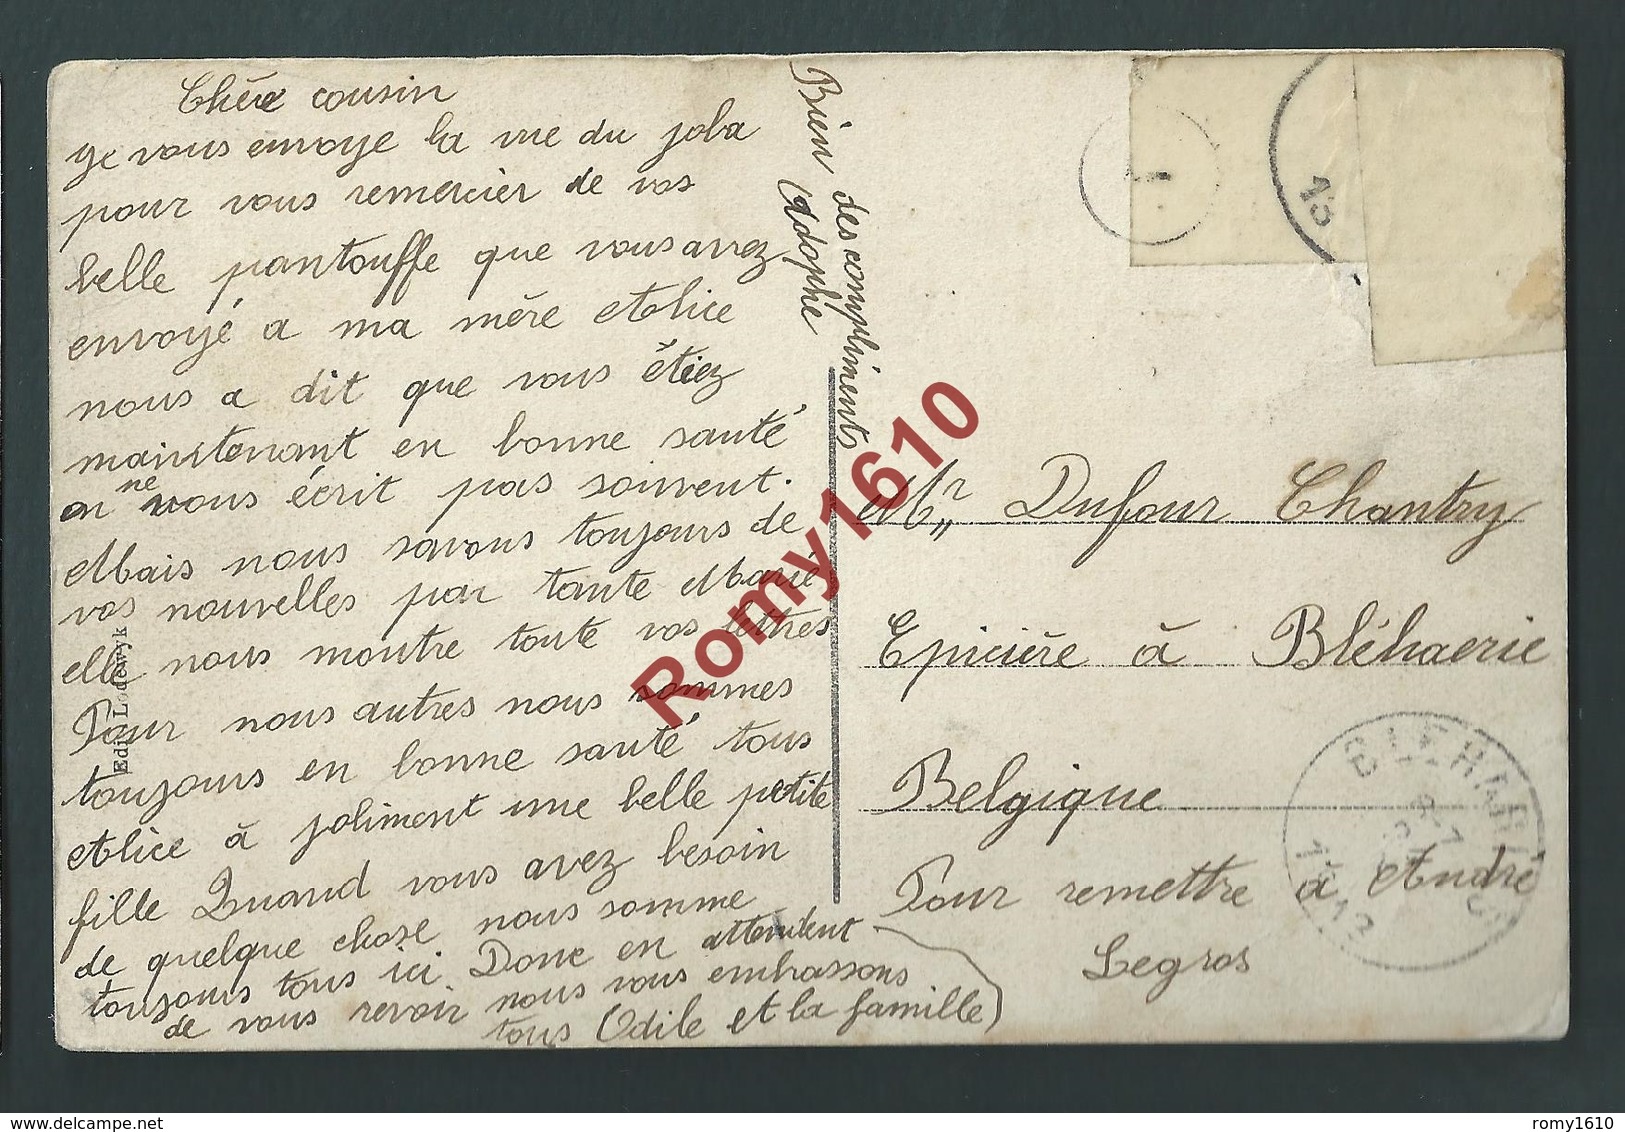 Chére cousin
Je vous envoye la vue du joba
pour vous remercier de vos
belle pantouffe que vous avvez
envoyé a ma mére Alice
nous a dit que vous êtiez
maintenant en bonne santé
on ne vous écrit pas souvent.
Mais nous savons toujours de
vos nouvelles par tante Marie
elle nous montre toute vos lettres
Pour nous autres nous sommes
toujours en bonne santé tous
Alice à joliment une belle petite
fille Quand vous avez besoin
de quelque chose nous somme
toujours tous ici Donc en attendent
de vous revoir nous vous embrassons
tous Odile et la famille
Bien des compliments
Adophe
Edit. Lodewyk
Mr Dufour Chantry
Epicière à Bléhaerie
Belgique
Pour remettre a André
Legros
1
13
BLEHARIES
Romy1610
delcampe.net
romy1610